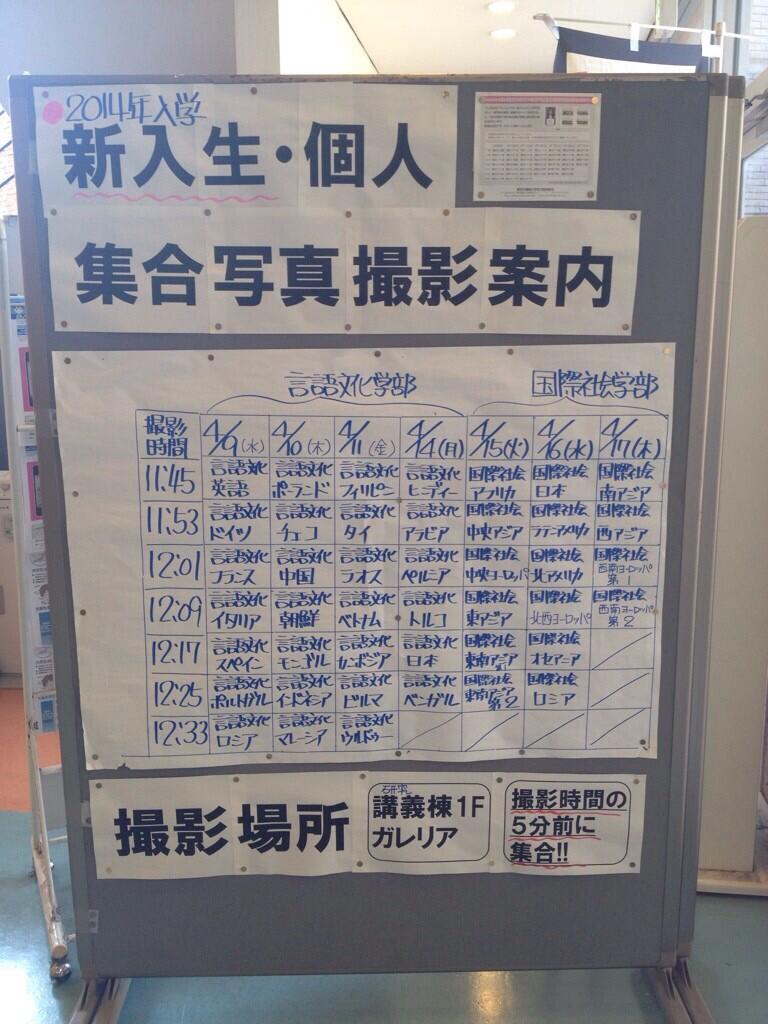 2014年入学
新入生・個人
集合写真撮影案内
言語文化学部 国際社会学部
撮影時間 4/9(水) 4/10(木) 4/11(金) 4/14(月) 4/15(火) 4/16(水) 4/17(木)
11:45 言語文化 英語 言語文化 ポーランド 言語文化 フィリピン 言語文化 ヒンディー 国際社会 アフリカ 国際社会 日本 国際社会 南アジア
11:53 言語文化 ドイツ 言語文化 チェコ 言語文化 タイ 言語文化 アラビア 国際社会 中央アジア 国際社会 ラテンアメリカ 国際社会 西アジア
12:01 言語文化 フランス 言語文化 中国 言語文化 ラオス 言語文化 ペルシア 国際社会 中央ヨーロッパ 国際社会 北アメリカ 国際社会 西南ヨーロッパ 第1
12:09 言語文化 イタリア 言語文化 朝鮮 言語文化 ベトナム 言語文化 トルコ 国際社会 東アジア 国際社会 北西ヨーロッパ 国際社会 西南ヨーロッパ 第2
12:17 言語文化 スペイン 言語文化 モンゴル 言語文化 カンボジア 言語文化 日本 国際社会 東南アジア 第1 国際社会 オセアニア
12:25 言語文化 ポルトガル 言語文化 インドネシア 言語文化 ビルマ 言語文化 ベンガル 国際社会 東南アジア 第2 国際社会 ロシア
12:33 言語文化 ロシア 言語文化 マレーシア 言語文化 ウルドゥー
撮影場所
研究
講義棟1F
ガレリア
撮影時間の
5分前に
集合!!